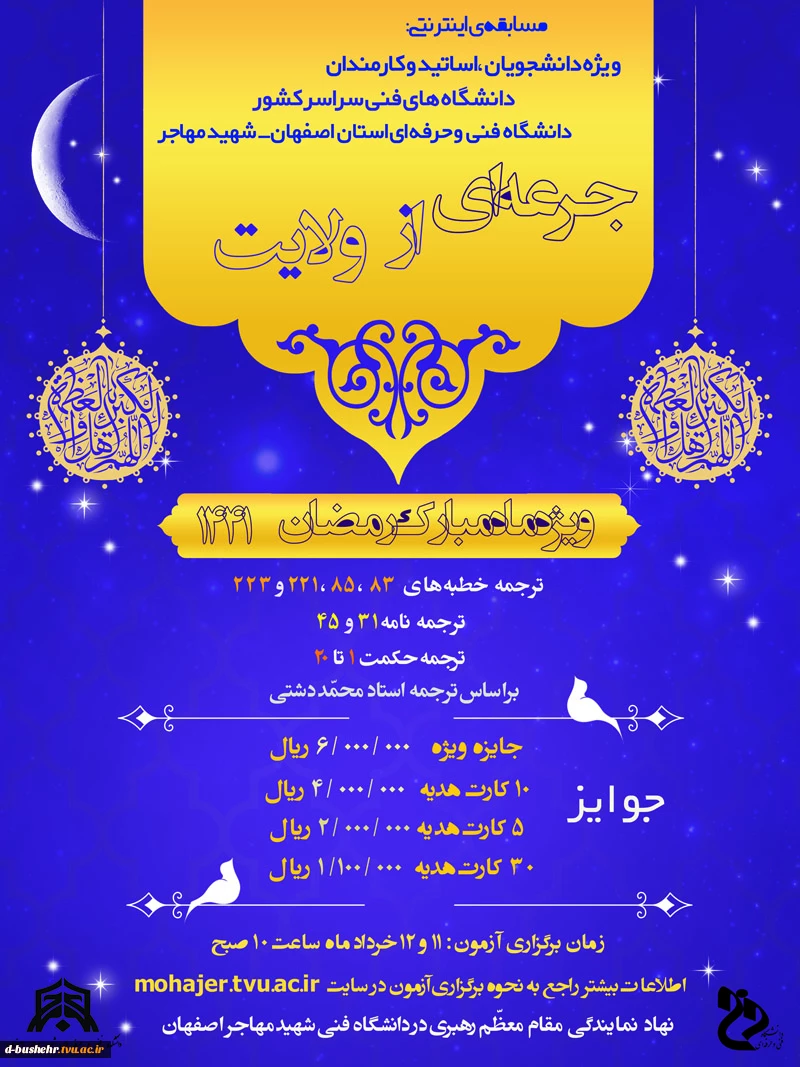 مسابقه‌ی اینترنتی:
ویژه دانشجویان ،اساتید و کارمندان
دانشگاه های فنی سراسر کشور
دانشگاه فنی وحرفه ای استان اصفهان_ شهید مهاجر
جرعه‌ای از ولایت
اللهم اهل الکبریاء و العظمة
اللهم اهل الکبریاء و العظمة
ویژه ماه مبارک رمضان ۱۴۴۱
ترجمه خطبه های ۸۳ ،۸۵ ،۲۲۱ و ۲۲۳
ترجمه نامه ۳۱ و ۴۵
ترجمه حکمت ۱ تا ۲۰
براساس ترجمه استاد محمّد دشتی
جوایز
جایزه ویژه ۶/۰۰۰/۰۰۰ ریال
۱۰ کارت هدیه ۴/۰۰۰/۰۰۰ ریال
۵ کارت هدیه ۲/۰۰۰/۰۰۰ ریال
۳۰ کارت هدیه ۱/۱۰۰/۰۰۰ ریال
زمان برگزاری آزمون: ۱۱ و ۱۲ خرداد ماه ساعت ۱۰ صبح
اطلاعات بیشتر راجع به نحوه برگزاری آزمون در سایت mohajer.tvu.ac.ir
نهاد نمایندگی مقام معظّم رهبری در دانشگاه فنی شهید مهاجر اصفهان
d-bushehr.tvu.ac.ir